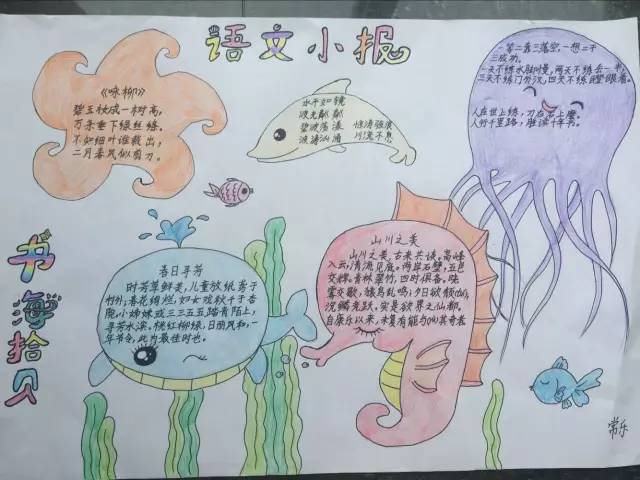 语文小报
《咏柳》
碧玉妆成一树高，
万条垂下绿丝绦。
不知细叶谁裁出，
二月春风似剪刀。
水平如镜
波光粼粼
碧波荡漾 惊涛骇浪
波涛汹涌 川流不息
一等二靠三落空，一想二干
三成功。
一天不练手脚慢，两天不练丢一半，
三天不练门外汉，四天不练瞪眼看。
人在世上练，刀在石上磨。
人行千里路，胜读十年书。
书海拾贝
春日寻芳
时芳草鲜美，儿童放纸鸢于
村外，春花绚烂，
小姊妹或三三五五踏青陌上，
寻芳水滨。桃红柳绿，日丽风和，一
年节令，此为最佳时也。
山川之美
山川之美，古来共谈。高峰
入云，清流见底。两岸石壁，五色
交辉。青林翠竹，四时俱备。晓
雾交歇，猿鸟乱鸣；夕日欲颓(tuí)，
沉鳞竞跃，实是欲界之仙都。
自康乐以来，未复有能与(yù)其奇者
常乐